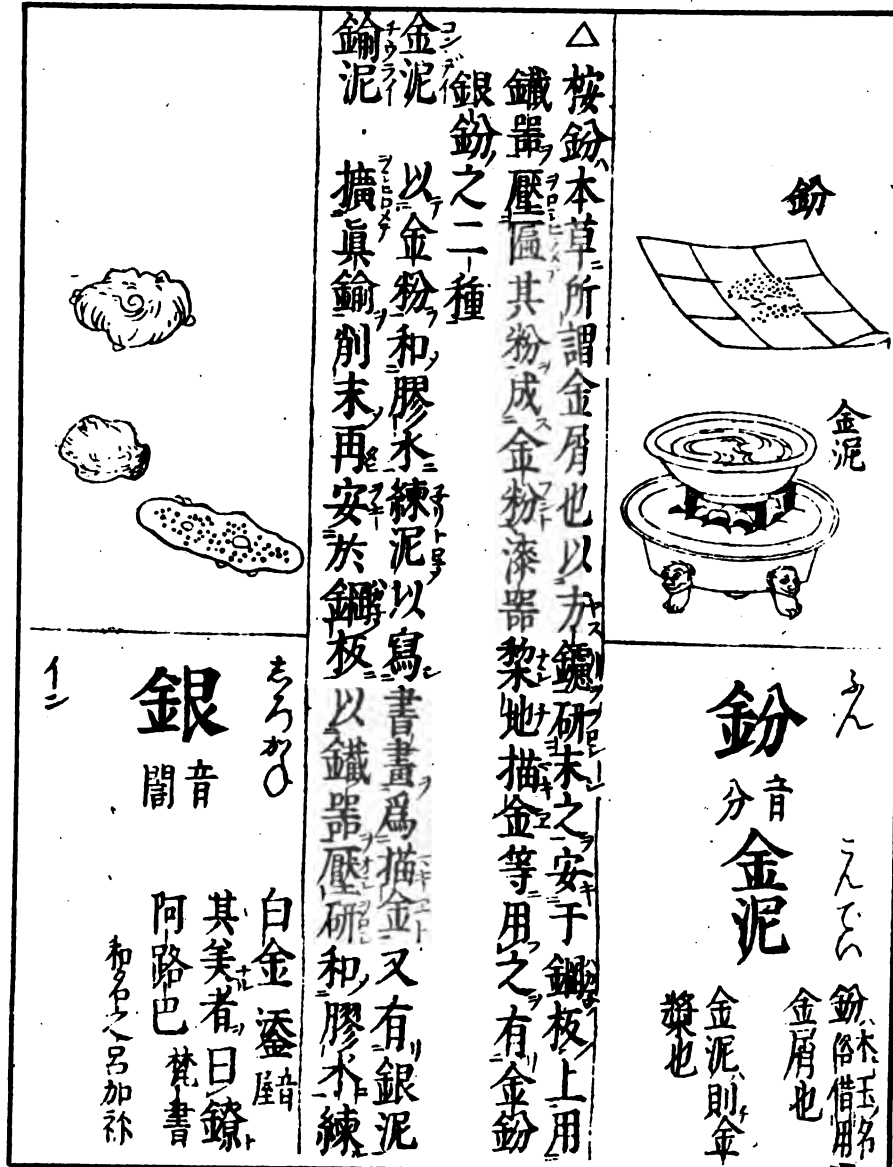 鈖
金泥
ふん
鈖
音分
こんでい
金泥
鈖ハ木玉ノ名俗借用
金屑也
金泥ハ則チ金
漿也
△桉鈖ハ本草ニ所謂金屑也以方鑢研末之安于鋼板ノ上用
鐵器壓匾其粉成金粉漆器梨地描金等ニ用之有金鈖
銀鈖之二種
金泥 以金粉和膠水練泥以寫書畫爲描金又有銀泥
鍮泥 擴眞鍮削末再安於鋼板以鐵器壓研和膠水練
しろかね
銀
音誾
イン
白金 鋈音屋
其美者曰鐐
阿路巴 梵書
和名之呂加祢